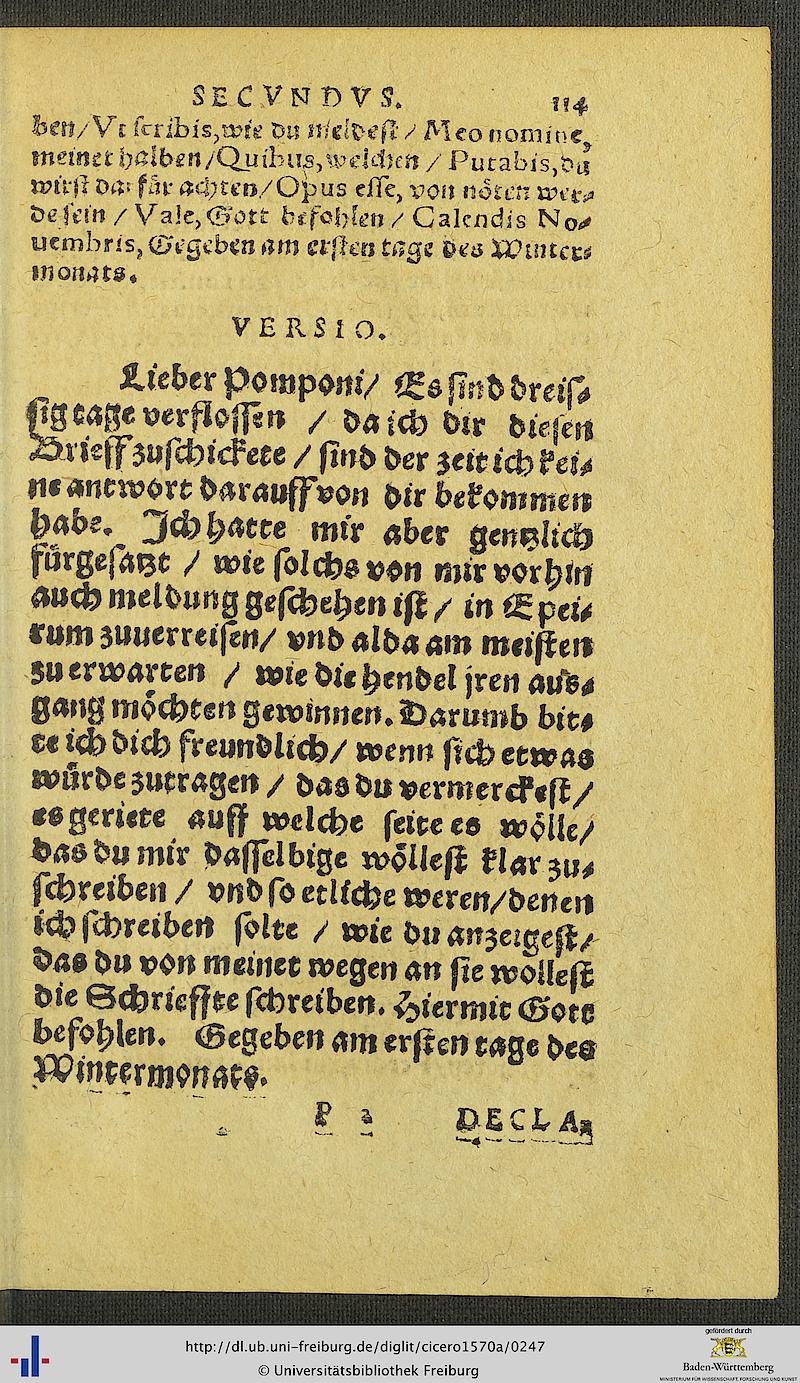 SECVNDVS. 114
ben/Vt scribis, wie du meldest / Meo nomine,
meinet halben/Quibus, welchen / Putabis, du
wirst dafür achten/Opus esse, von nöten wer⸗
de sein / Vale, Gott befohlen / Calendis No⸗
uembris, Gegeben am ersten tage des Winter⸗
monats.
VERSIO.
Lieber Pomponi/ Es sind dreis⸗
sig tage verflossen / da ich dir diesen
Brieff zuschickete / sind der zeit ich kei⸗
ne antwort darauff von dir bekommen
habe. Ich hatte mir aber gentzlich
fürgesatzt / wie solchs von mir vorhin
auch meldung geschehen ist / in Epei⸗
rum zuuerreisen/ vnd alda am meisten
zu erwarten / wie die hendel jren aus⸗
gang möchten gewinnen. Darumb bit⸗
te ich dich freundlich/ wenn sich etwas
würde zutragen / das du vermerckest /
es geriete auff welche seite es wölle/
das du mir dasselbige wöllest klar zu⸗
schreiben / vnd so etliche weren/denen
ich schreiben solte / wie du anzeigest/
das du von meinet wegen an sie wollest
die Schrieffte schreiben. Hiermit Gott
befohlen. Gegeben am ersten tage des
Wintermonats.
P 2 DECLA⸗
http://dl.ub.uni-freiburg.de/diglit/cicero1570a/0247
© Universitätsbibliothek Freiburg
gefördert durch
Baden-Württemberg
MINISTERIUM FÜR WISSENSCHAFT, FORSCHUNG UND KUNST